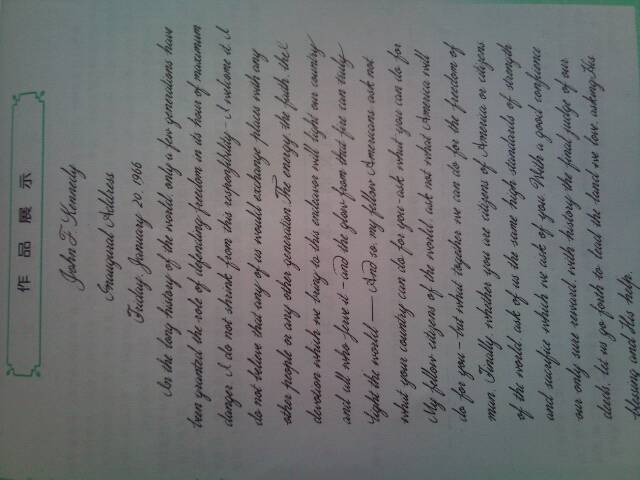 作品展示
John F Kennedy
Inaugural Address
Friday January 20, 1966
In the long history of the world only a few generations have
been granted the role of defending freedom in its hour of maximum
danger. I do not shrink from this responsibility – I welcome it. I
do not believe that any of us would exchange places with any
other people or any other generation. The energy, the faith, the
devotion which we bring to this endeavor will light our country
and all who serve it – and the glow from that fire can truly
light the world — And so, my fellow Americans ask not
what your country can do for you – ask what you can do for
My fellow citizens of the world ask not what America will
do for you – but what together we can do for the freedom of
man. Finally whether you are citizens of America or citizens
of the world, ask of us the same high standards of strength
and sacrifice which we ask of you. With a good confience
our only sure reward, with history the final judge of our
deeds, let us go forth to lead the land we love, asking His
blessing and His help,